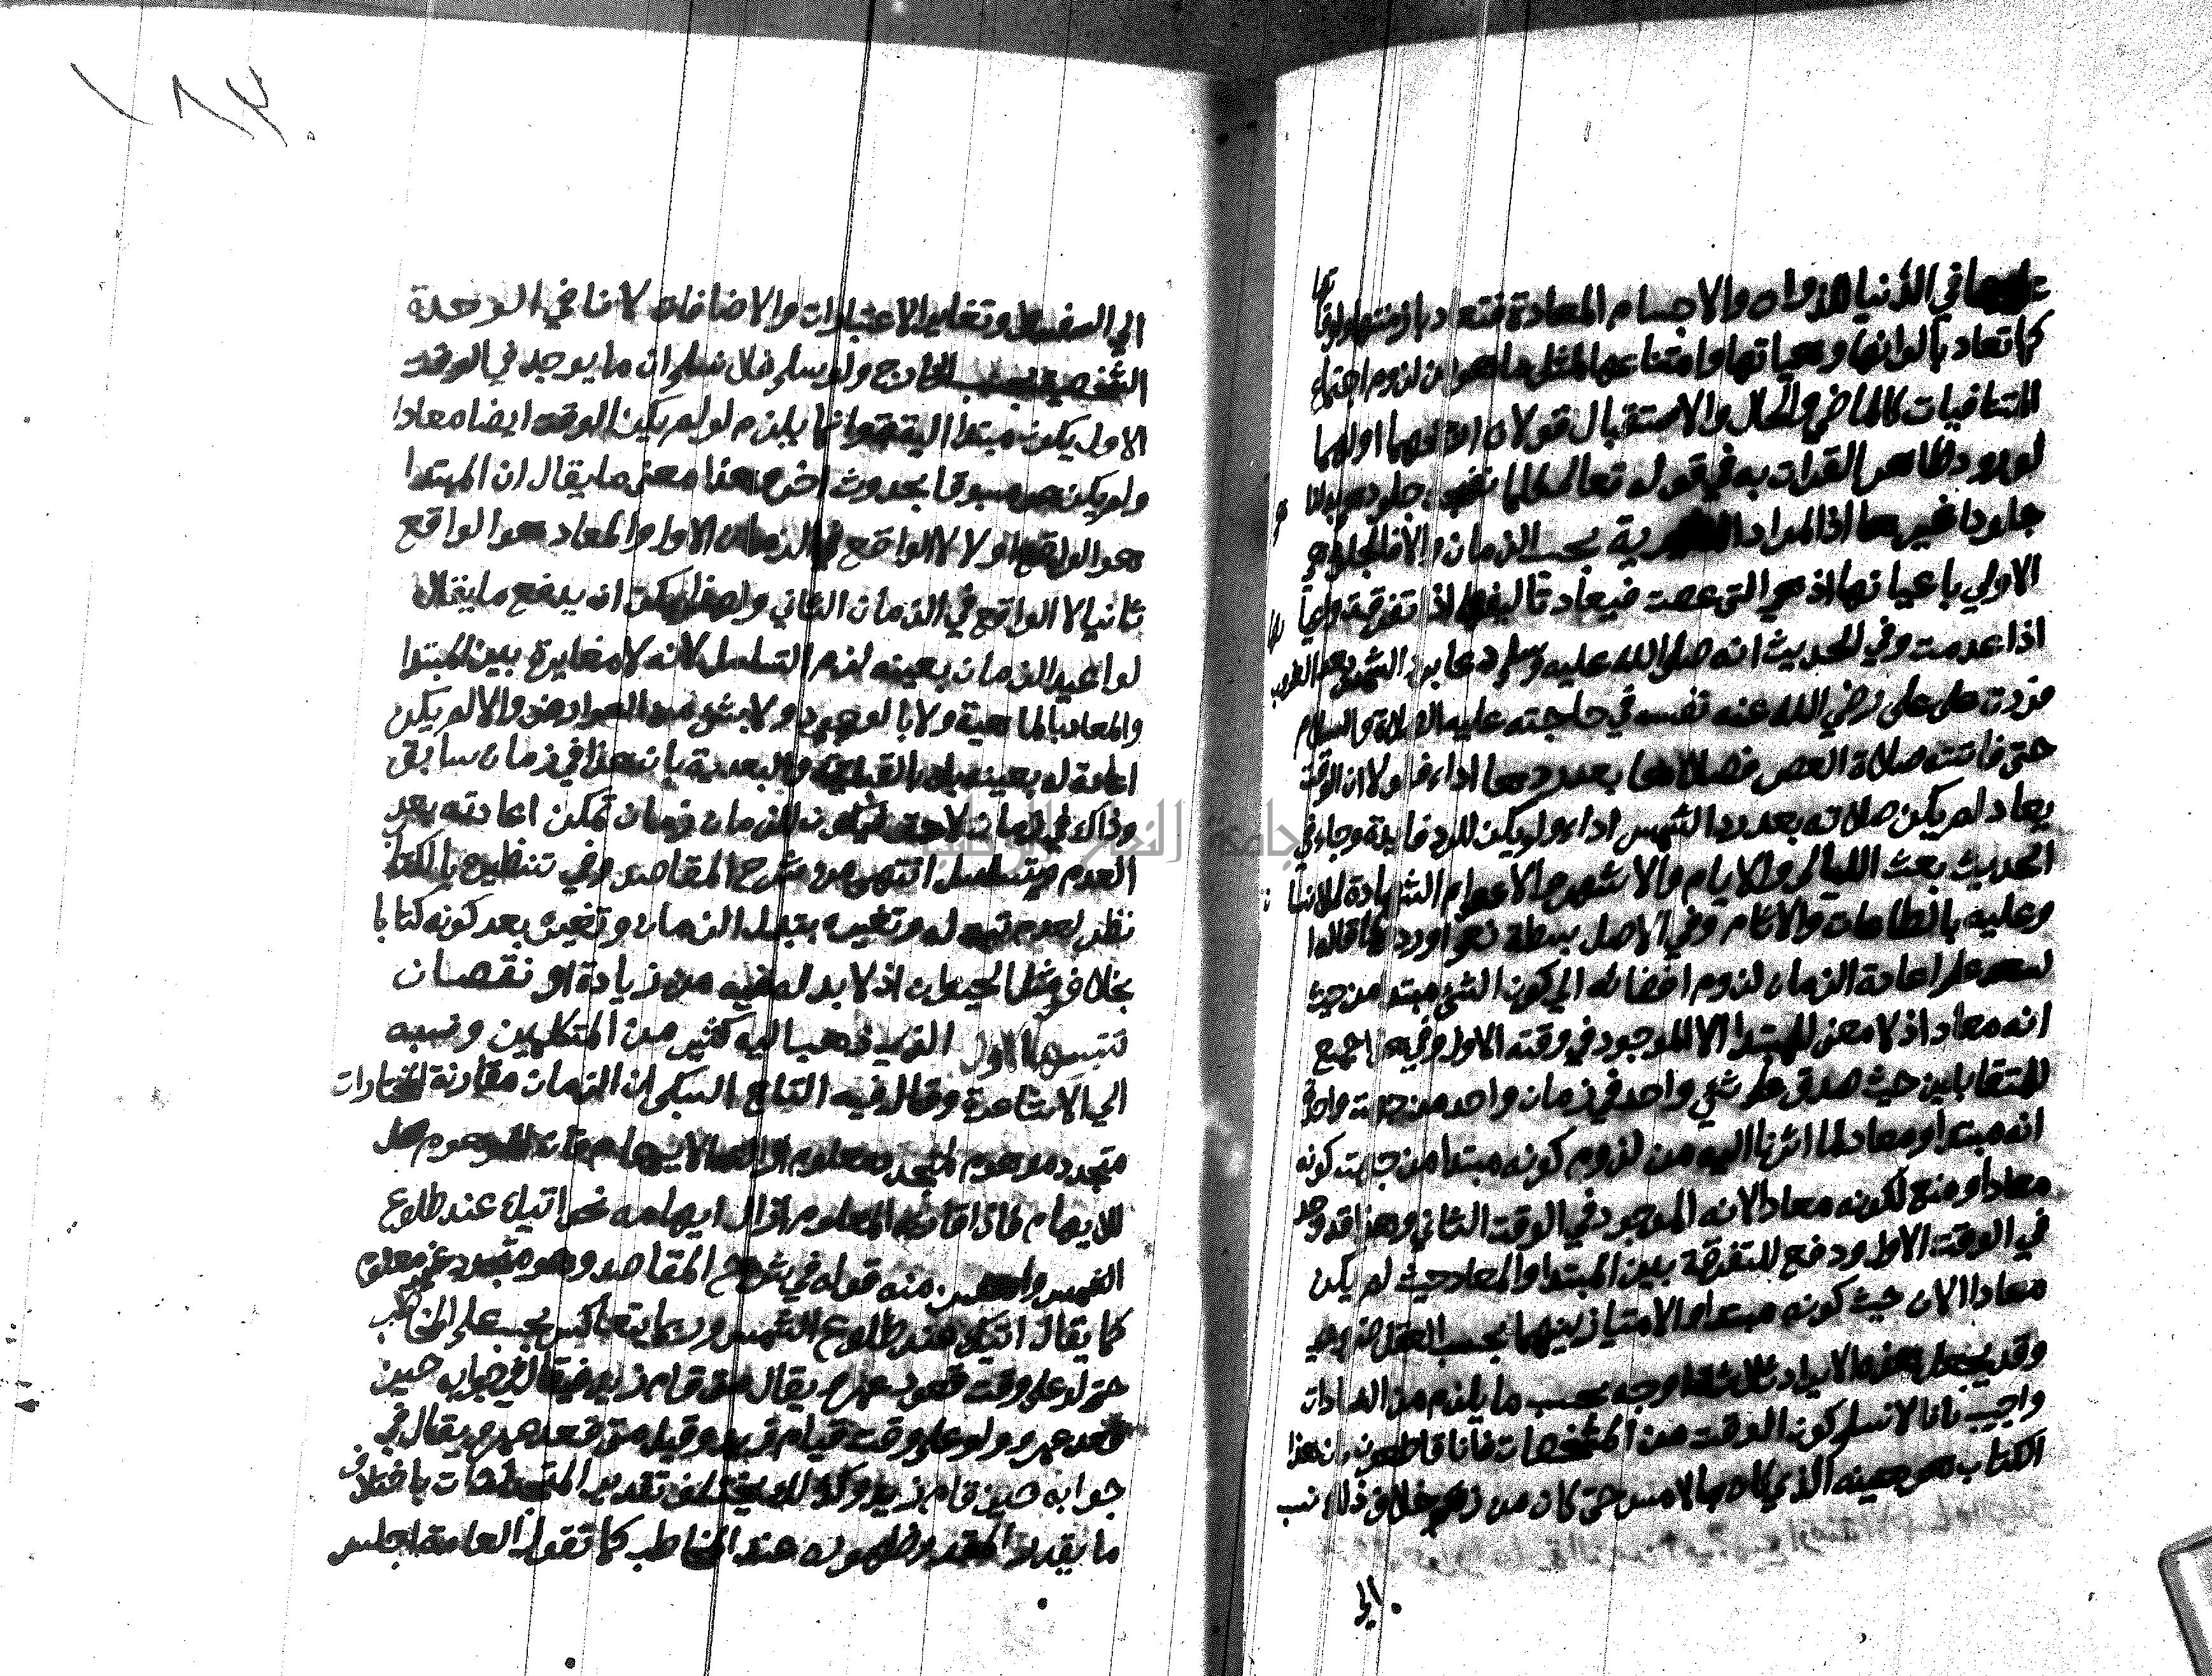 في الدنيا للذوات والاجسام المعادة فتعاد بازمنتها واوقاتها
كما تعاد بالوانها وهيآتها وامتناعها لمثل ما هو من لزوم اجتماع
المتنافيات كالماضي والحال والاستقبال قولان اولهما
لورود ظاهر القرات به في قوله تعالى كلما نضجت جلودهم بدلناهم
جلودا غيرها اذ المراد بحسب الزمان والا فالجلود هي
الاولى باعيانها اذ هي التي عصت فيعاد تاليفها اذا تفرقت واعيانها
اذا عدمت وفي الحديث انه صلى الله عليه وسلم دعا برد الشمس بعد الغروب
فردت على على رضي الله عنه نفسه في حاجته عليه الصلاة والسلام
حتى فاتته صلاة العصر فصلاها بعد ردها اداء فلولا ان الوقت
يعاد لم يكن صلاته بعد رد الشمس اداء ولم يكن للرد فايدة وجاء في
الحديث بعث الليالي والايام والاشهر والاعوام الشهادة للانسان
وعليه بالطاعات والاثام وفي الاصل بسطة نعم اورد
على اعادة الزمان لزوم افضائه الي كون الشئ مبتدا من حيث
انه معاد اذ لا معنى للمبتدا الا الموجود في وقته الاول وفي جمع
للمتقابلين حيث صدق على شئ واحد في زمان واحد من جهة واحدة
انه مبتدا ومعاد لما اشرنا اليه من لزوم كونه مبتدا من جهة كونه
معادا ومنع لكونه معادا لانه الموجود في الوقت الثاني وهذا قد وجد
في الوقت الاول ودفع للتفرقة بين المبتدا والمعاد حيث لم يكن
معادا الا من حيث كونه مبتدا والامتياز بينهما بحسب العقل ضروري
وقد يجعل هذا الايراد ثلاثة اوجه بحسب ما يلزم من الفسادات
واجيب بانا لا نسلم كون الوقت من المشخصات فانا قاطعون بان هذا
الكتاب هو بعينه الذي كان بالامس حتى كان من زعم خلاف ذلك نسب
الى
الي السفسطة وتغاير الاعتبارات والاضافات لا ينافي الوحدة
الشخصية بحسب الخارج ولو سلم فلا نسلم ان ما يوجد في الوقت
الاول يكون مبتدا البتة وانما يلزم لو لم يكن الوقت ايضا معادا
ولم يكن هو مسبوقا بحدوث اخر وهذا معنى ما يقال ان المبتدا
هو الواقع اولا لا الواقع في الزمان الاول والمعاد هو الواقع
ثانيا لا الواقع في الزمان الثاني وبهذا يمكن ان يدفع ما يقال
لو اعيد الزمان بعينه لزم التسلسل لانه لا مغايرة بين المبتدا
والمعاد بالماهية ولا بالوجود ولا بشئ من العوارض والا لم يكن
اعادة له بعينه بل بالقبلية والبعدية بان هذا في زمان سابق
وذاك في زمان لاحق فيكون للزمان زمان تمكن اعادته بعد
العدم ويتسلسل انتهى من شرح المقاصد وفي تنظيره بالكتاب
نظر لعدم تبدله وتغيره بتبدل الزمان وتغيره بعد كونه كتابا
بخلاف مثل الحيوان اذ لا بد له فيه من زيادة او نقصان
الاول الذي ذهب اليه كثير من المتكلمين ونسبه
الي الاشاعرة وقال فيه التاج السبكي ان الزمان مقارنة
متجدد موهوم لمتجدد معلوم ازالة للايهام من الموهوم
للايهام فاذا قارنه المعلوم ازال ايهامه نحو اتيك عند طلوع
الشمس منه قوله في شرح المقاصد وهو متجدد غير معلوم
كما يقال اتيك عند طلوع الشمس وربما يتعاكس بحسب علم المخاطب
حتى لو علم وقت قعود عمرو يقال متى قام زيد فيقال في جوابه حين
قعد عمرو ولو علم وقت قيام زيد وقيل متى قعد عمرو يقال في
جوابه حين قام زيد وكذلك يختلف تقدير المتجددات باختلاف
ما يقدر المقدر ظهوره عند المخاطب كما تقول العامة اجلس